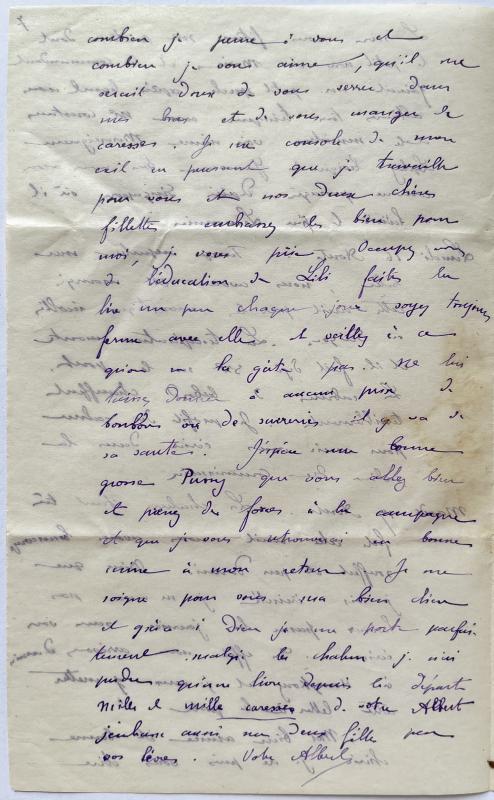 7
combien je pense à vous et
combien je vous aime, qu'il me
serait doux de vous serrer dans
mes bras et de vous manger de
caresses. Je me console de mon
exil en pensant que je travaille
pour vous et nos deux chères
fillettes embrassez les bien pour
moi, je vous prie Occupez vous
de l'éducation de Lili faites la
lire un peu chaque jour soyez toujours
ferme avec elle et veillez à ce
qu'on ne la gâte pas. Ne lui
laissez donner à aucun prix de
bonbons ou de sucreries il y va de
sa santé. J'espère ma bonne
grosse que vous allez bien
et prenez des forces à la campagne
et que je vous retrouverai en bonne
mine à mon retour. Je me
soigne pour vous ma bien chère
et grâce à Dieu je me porte parfai-
tement malgré les chaleurs je n'ai
perdu qu'une livre depuis le départ
Mille et mille caresses de votre Albert
j'embrasse aussi nos deux filles par
vos lèvres. Votre Albert